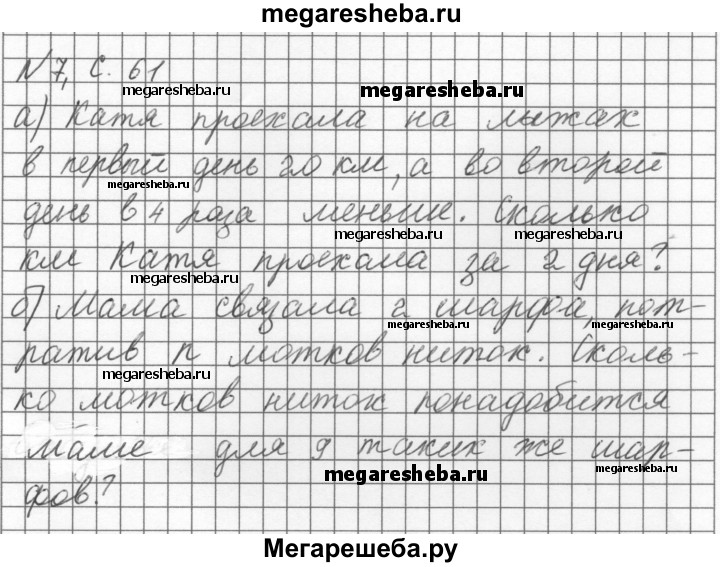 megaresheba.ru
N 7, с. 61
megaresheba.ru
megaresheba.ru
а) Катя проехала на лыжах
в первый день 20 км, а во второй
megaresheba.ru
день в 4 раза меньше. Сколько
megaresheba.ru
megaresheba.ru
км Катя проехала за 2 дня?
megaresheba.ru
б) Мама связала 2 шарфа, пот-
megaresheba.ru
megaresheba.ru
ратив n мотков ниток. Сколь-
megaresheba.ru
ко мотков ниток понадобится
маме для 9 таких же шар-
megaresheba.ru
megaresheba.ru
фов?
Мегарешеба.ру